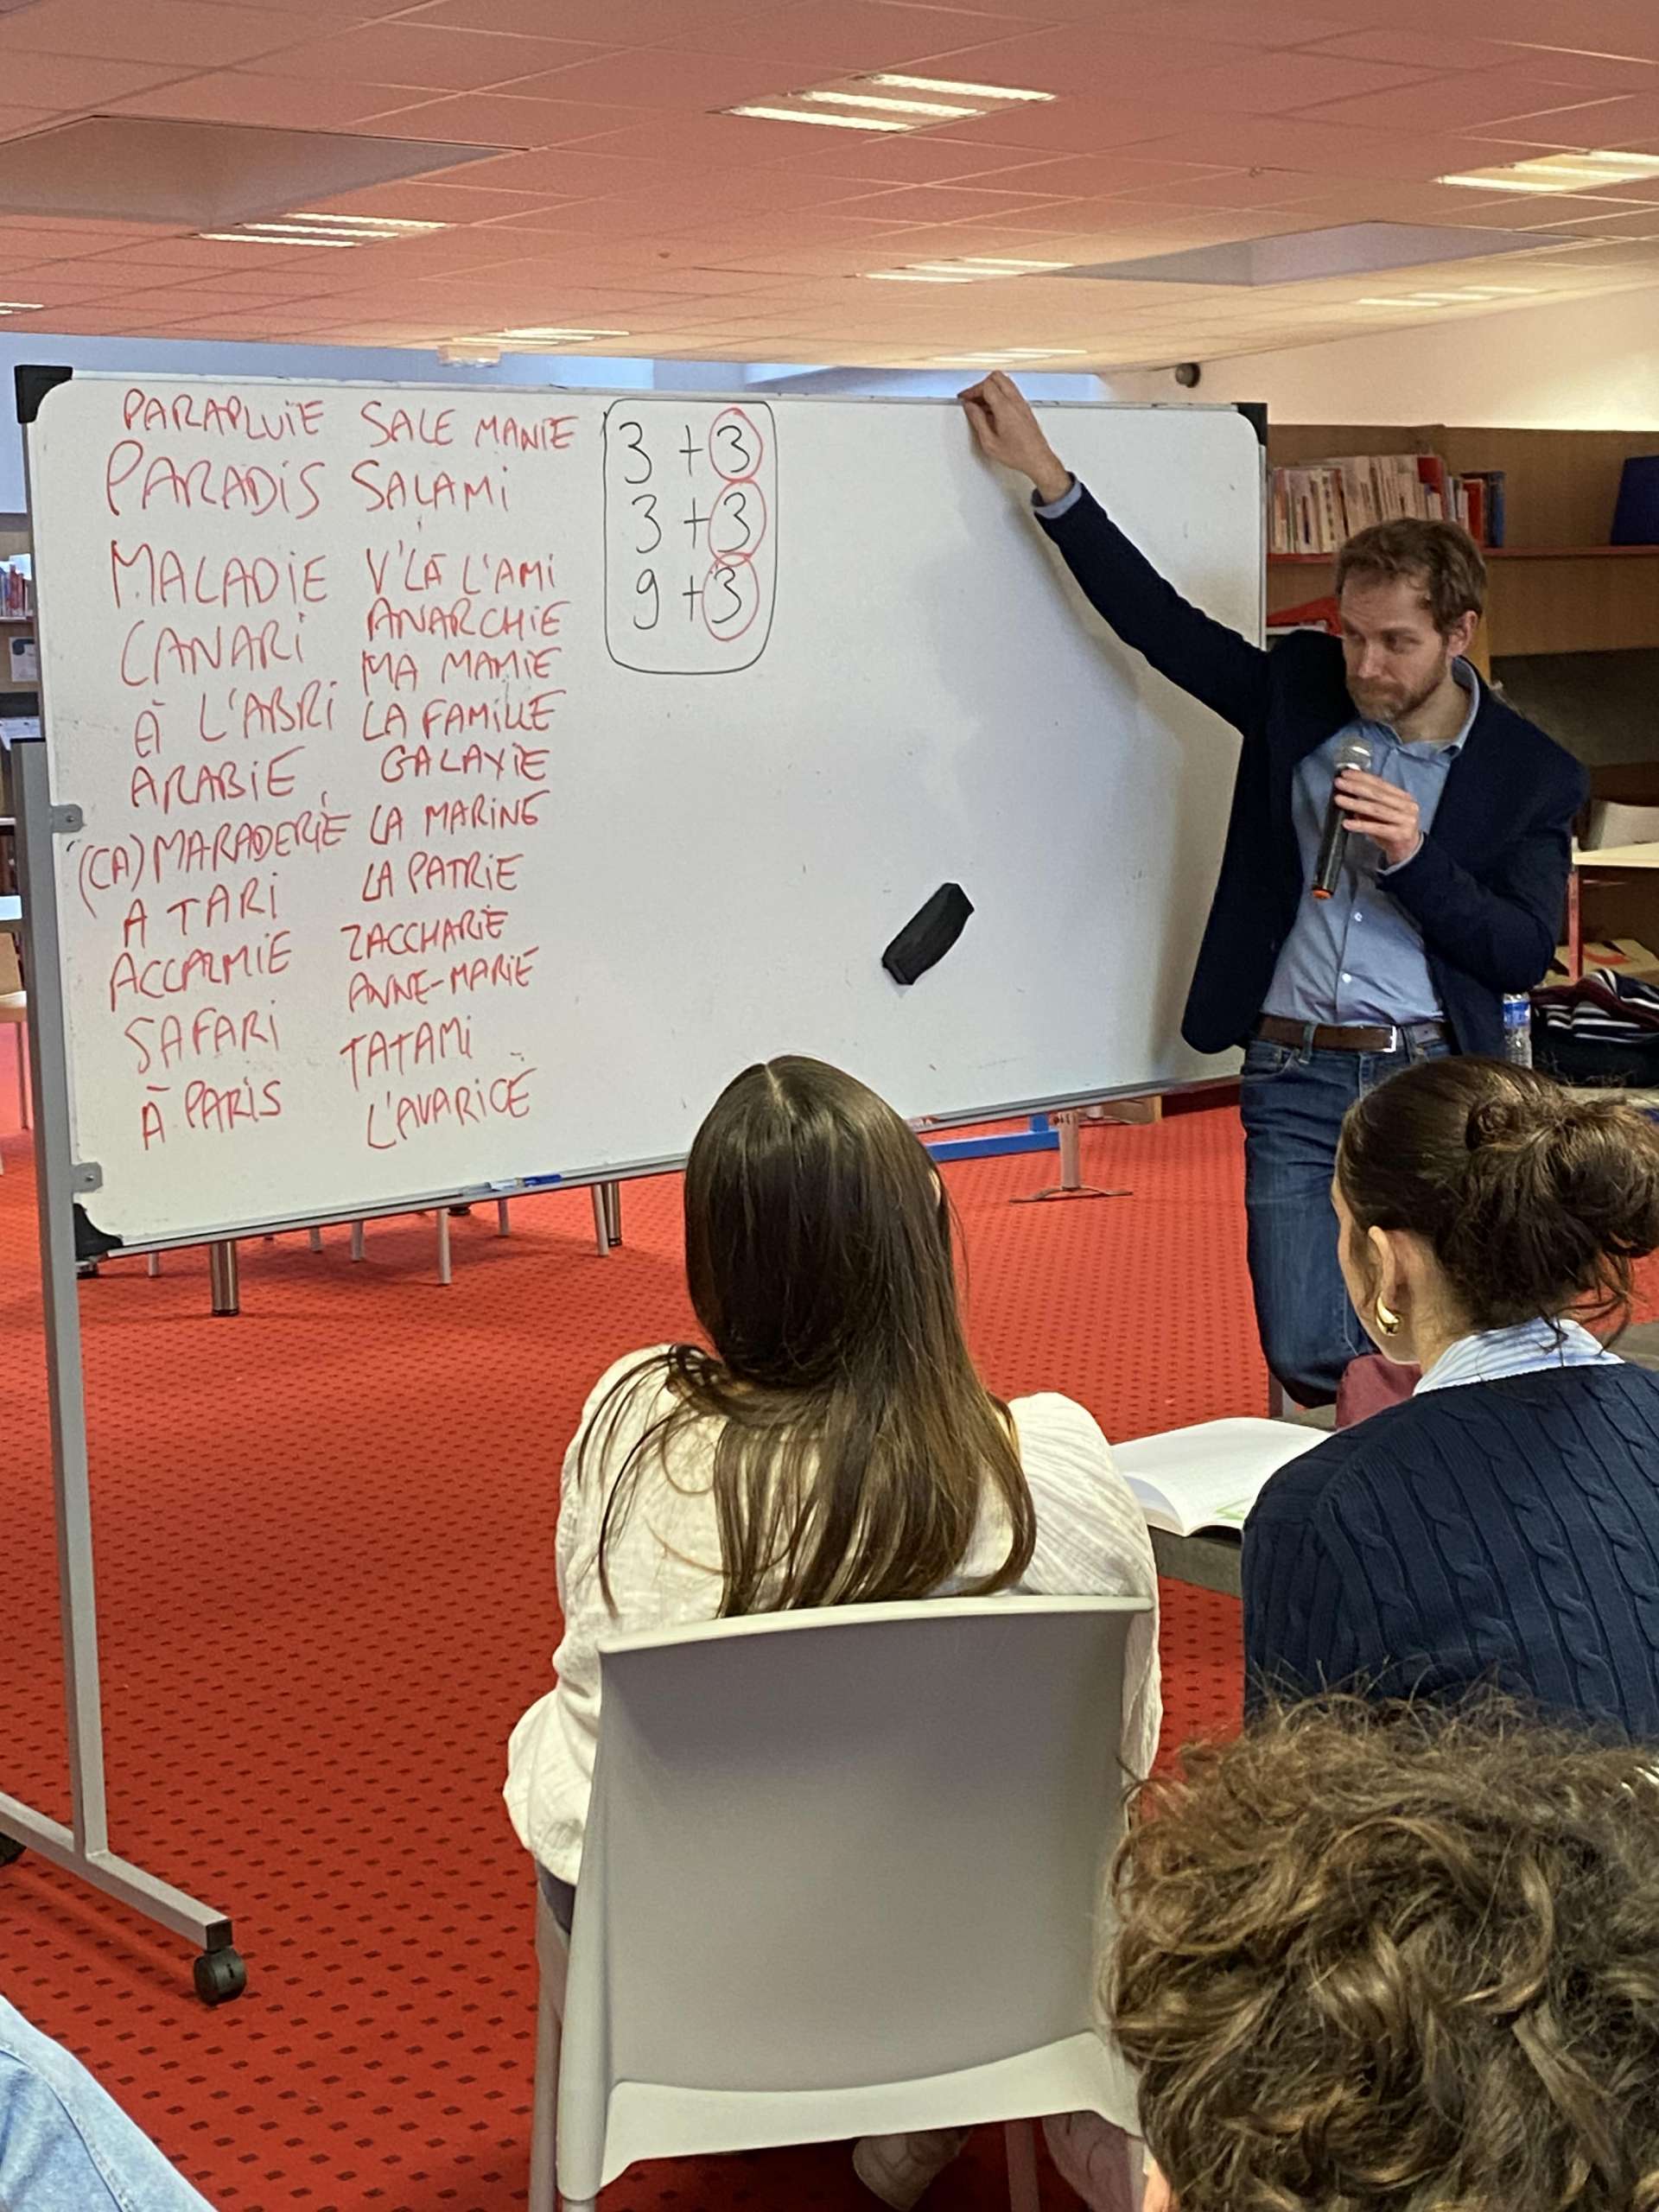 PARAPLUiE
PARADiS
MALADiE
CANARi
À L'ABRi
ARABiE
(CA)MARADERiE
A TARi
ACCALMiE
SAFARi
À PARiS
SALE MANiE
SALAMi
V'LÀ L'AMi
ANARCHiE
MA MAMiE
LA FAMiLLE
GALAXiE
LA MARiNE
LA PATRiE
ZACCHARiE
ANNE-MARiE
TATAMi
L'AVARiCE
3 + 3
3 + 3
9 + 3